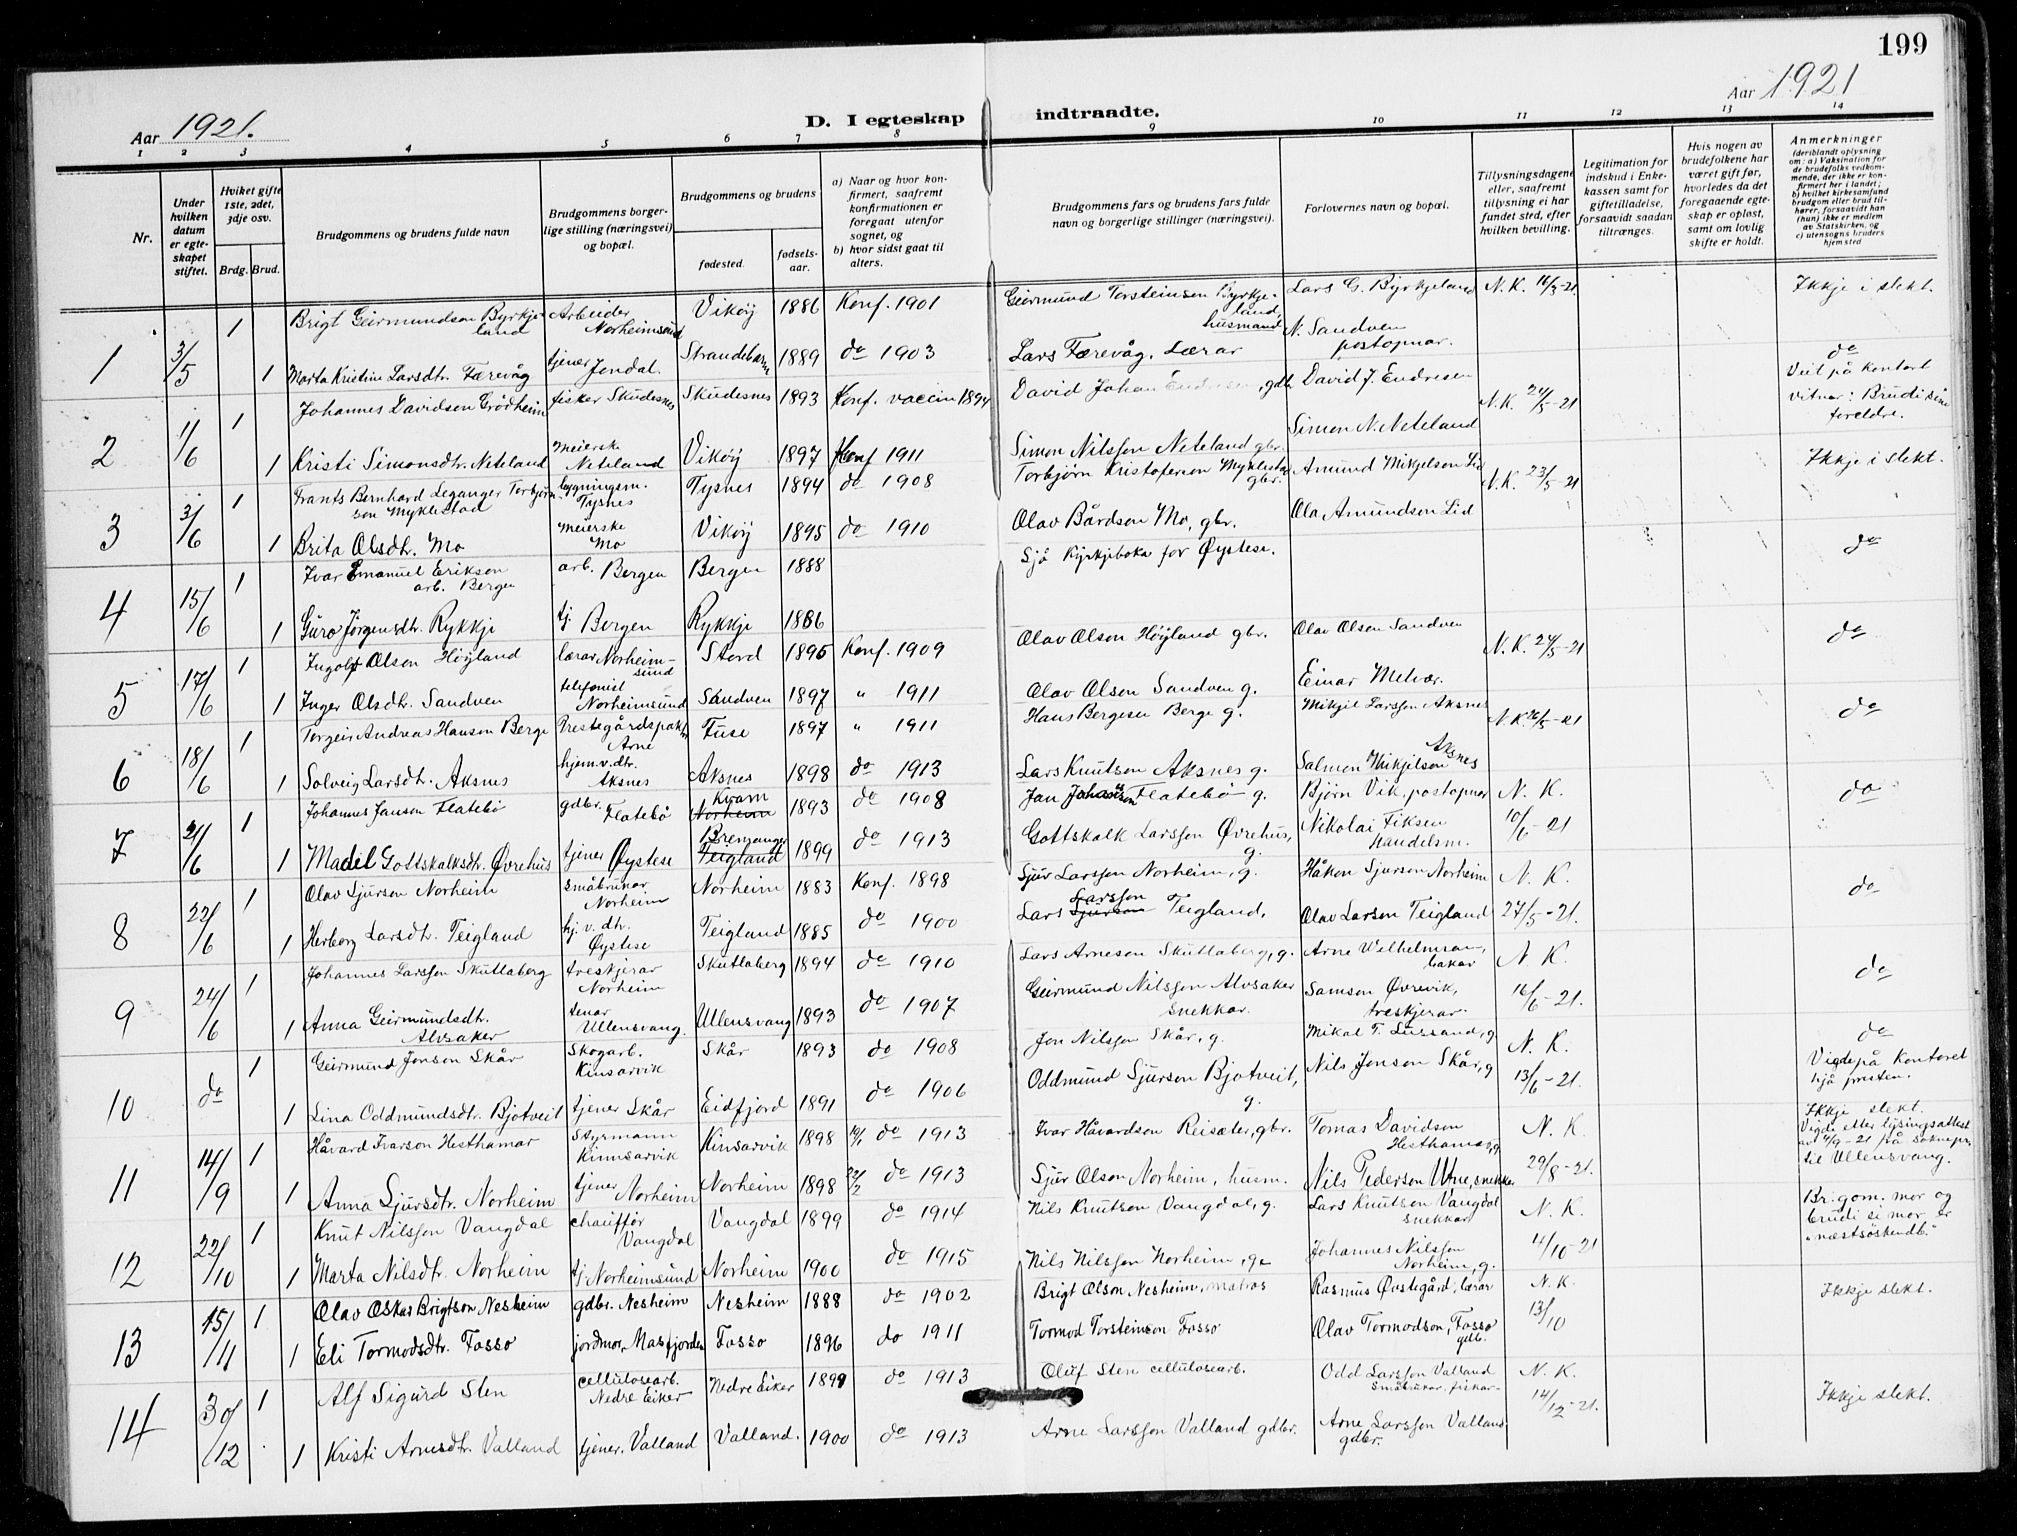 199
Aar 1921.
D. I egteskap indtraadte.
Aar 1921
1 2 3 4 5 6 7 8 9 10 11 12 13 14
Nr.
Under hvilken datum er egteskapet stiftet.
Hviket gifte 1ste, 2det, 3dje osv.
Brdg. Brud.
Brudgommens og brudens fulde navn
Brudgommens borgerlige stilling (næringsvei) og bopæl.
Brudgommens og brudens
fødested.
fødselsaar.
a) Naar og hvor konfirmert, saafremt konfirmationen er foregaat utenfor sognet, og
b) hvor sidst gaat til alters.
Brudgommens fars og brudens fars fulde navn og borgerlige stillinger (næringsvei).
Forlovernes navn og bopæl.
Tillysningsdagene eller, saafremt tillysning ei har fundet sted, efter hvilken bevilling.
Legitimation for indskud i Enkekassen samt for giftetilladelse, forsaavidt saadan tiltrænges.
Hvis nogen av brudefolkene har været gift før, hvorledes da det foregaaende egteskap er opløst, samt om lovlig skifte er holdt.
Anmerkninger (deriblandt oplysning om: a) Vaksination for de brudefolks vedkommende, der ikke er konfirmert her i landet; b) hvilket kirkesamfund brudgom eller brud tilhører, forsaavidt han (hun) ikke er medlem av Statskirken, og c) utensogns bruders hjemsted
1 3/5 1 Brigt Geirmundson Byrkjeland Arbeider Norheimsund Vikøy 1886 Konf. 1901 Geirmund Torsteinson Byrkjeland, husmand Lars G. Byrkjeland N. K. 11/3-21 Ikkje i slekt.
1 Marta Kristine Larsdtr. Færevåg tjener Jondal. Strandebarm 1889 do 1903 Lars Færevåg. Lærar N. Sandven postopnar.
2 1/6 1 Johannes Davidson Grødheim fisker Skudesnes Skudesnes 1893 Konf. vaccin 1894 David Johan Endresen, gdb. David J. Endresen N. K. 24/5-21 do Viet på kontoret vitner: Brudi sine foreldre.
1 Kristi Simonsdtr. Neteland Meierske Neteland Vikøy 1897 Konf 1911 Simon Nilsson Neteland gbr. Simon N. Neteland
3 3/6 1 Frants Bernhard Leganger Torbjørnson Myklestad bygningsm. Tysnes Tysnes 1894 do 1908 Torbjørn Kristoferson Myklestad gbr. Amund Mikjelson Lid N. K. 23/5-21 Ikkje i slekt.
1 Brita Olsdtr. Mo Meierske Mo Vikøy 1895 do 1910 Olav Bårdson Mo, gbr. Ola Amundson Lid
4 15/6 1 Ivar Emanuel Erikson arb. Bergen arb. Bergen Bergen 1888 Sjå Kyrkjeboka for Øystese. do
1 Guro Jørgensdtr. Rykkje tj. Bergen Rykkje 1886
5 17/6 1 Ingolf Olson Høyland lærar Norheimsund Stord 1895 Konf. 1909 Olav Olson Høyland gbr. Olav Olson Sandven N. K. 24/5-21 do
1 Inger Olsdtr. Sandven telefonist Norheimsund Sandven 1897 " 1911 Olav Olson Sandven g. Einar Melvær.
6 18/6 1 Torgeir Andreas Hanson Berge Prestegårdspakter Arne Fuse 1897 " 1911 Hans Bergesen Berge g. Mikjel Larsson Aksnes N. K. 26/5-21 do
1 Solveig Larsdtr. Aksnes hjem.v. dtr. Aksnes Aksnes 1898 do 1913 Lars Knutson Aksnes g. Salmon Mikjelson Aksnes
7 21/6 1 Johannes Janson Flatebø gdbr. Flatebø Kvam Norheim 1893 do 1908 Jan Johanson Flatebø g. Bjørn Vik, postopnar N. K. 10/6-21 do
1 Madel Gottskalksdtr. Øvrehus tjener Øystese Bremanger Teigland 1899 do 1913 Gottskalk Larsson Øvrehus, g. Nikolai Fiksen handelsm.
8 22/6 1 Olav Sjurson Norheim småbrukar Norheim Norheim 1883 Konf. 1898 Sjur Larsson Norheim, g. Håkon Sjurson Norheim N. K. 27/5-21. do
1 Herborg Larsdtr. Teigland hj. v. dtr. Øystese Teigland 1885 do 1900 Lars Sjurson Larsson Teigland, Olav Larson Teigland
9 24/6 1 Johannes Larsson Skutlaberg treskjerar Norheim Skutlaberg 1894 do 1910 Lars Arneson Skutlaberg, g. Arne Wilhelmson, bakar N. K. 14/6-21. do
1 Anna Geirmundsdtr. Alvsaker tenar Ullensvang. Ullensvang 1893 do 1907 Geirmund Nilsson Alvsaker snekkar. Samson Øvrevik, treskjerar.
10 do 1 Geirmund Jonson Skår Skogarb. Kinsarvik Skår 1893 do 1908 Jon Nilsson Skår, g. Mikal T. Lussand, g N. K. 13/6-21. do Vigde på Kontoret hjå presten.
1 Lina Oddmundsdtr. Bjotveit tjener Skår Eidfjord 1891 do 1906 Oddmund Sjurson Bjotveit, g. Nils Jonson Skår, g
11 14/9 1 Håvard Ivarson Hesthamar Styrmann Kinnsarvik Kinsarvik 1898 do 1913 Ivar Håvardson Reisæter, gbr. Tomas Davidson Hesthamar, g N. K. 29/8-21. Ikkje slekt. Vigde etter lysingsattest av 4/9-21 på soknepr. til Ullensvang.
1 Anna Sjursdtr. Norheim tjener Norheim Norheim 1898 22/2 do 1913 Sjur Olson Norheim, husm. Nils Pederson Utne, snekker
12 22/10 1 Knut Nilsson Vangdal chauffør Vangdal Vangdal 1899 do 1914 Nils Knutson Vangdal, g. Lars Knutson Vangdal snekkar N. K. 4/10-21 Br.gom. mor og brudi si mor er "næstsøskendb."
1 Marta Nilsdtr. Norheim tj. Norheimsund Norheim 1900 do 1915 Nils Nilsson Norheim, g. Johannes Nilsson Norheim, g.
13 15/11 1 Olav Oskar Brigtson Nesheim gdbr. Nesheim Nesheim 1888 do 1902 Brigt Olson Nesheim, matros Rasmus Øvstegård, lærar N. K. 13/10 Ikkje slekt.
1 Eli Tormodsdtr. Fosso jordmor, Masfjorden Fosso 1896 do 1911 Tormod Torsteinson Fosso Olav Tormodson, Fosso gdb.
14 30/12 1 Alf Sigurd Sten cellulosearb. Nedre Eiker Nedre Eiker 1899 do 1913 Oluf Sten cellulosearb. Odd Larsson Valland småbrukar, fiskar N. K. 14/12-21. Ikkje slekt.
1 Kristi Arnesdtr. Valland tjener, Valland Valland. 1900 do 1913 Arne Larsson Valland gdbr. Arne Larsson Valland gdbr.